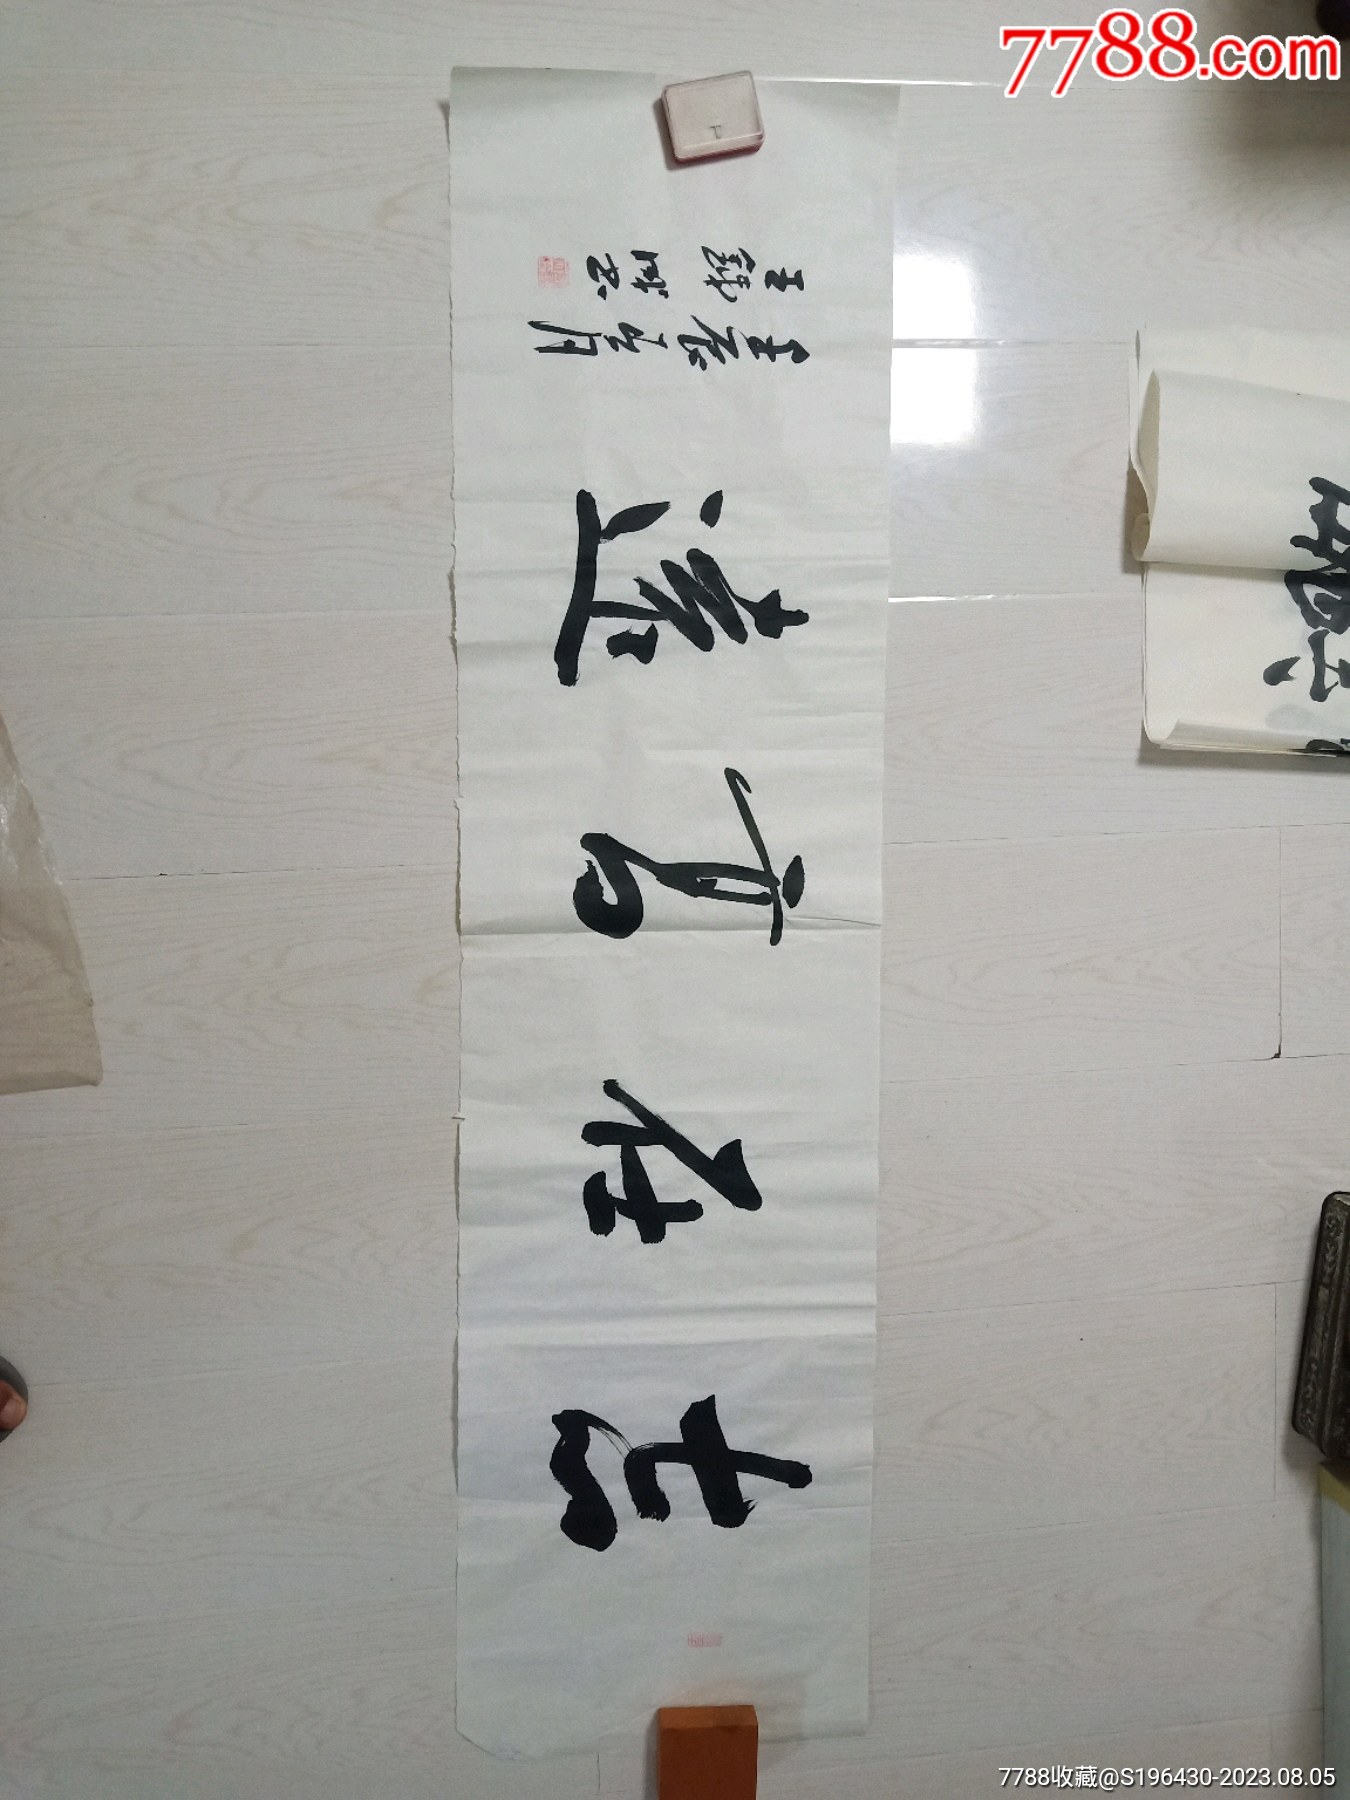 7788.com
志在高遠
壬辰 月
王 書
7788收藏@S196430-2023.08.05